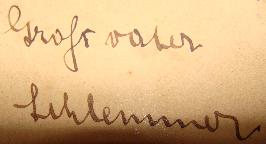 Großvater
Schlemmer